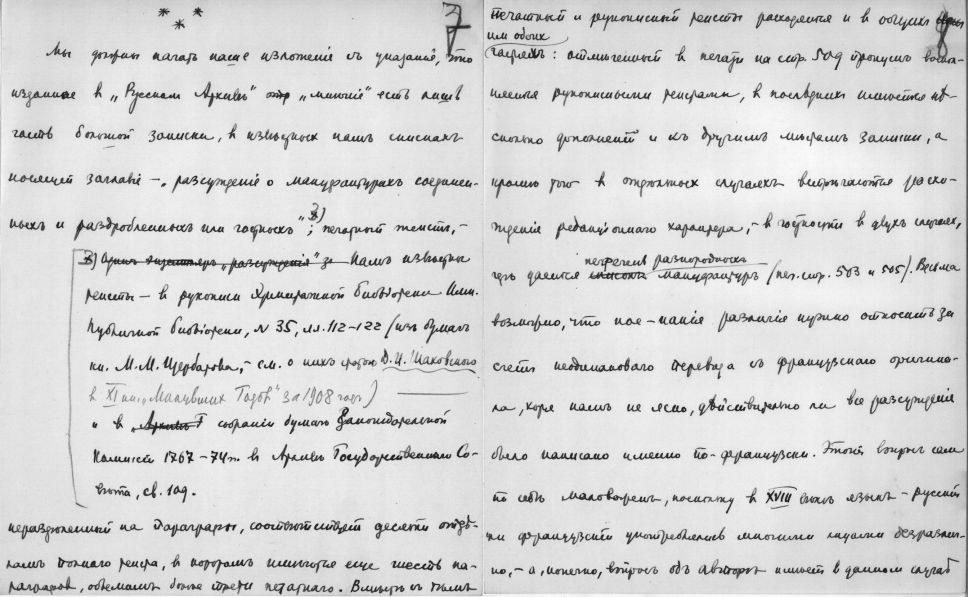 * * *
7
Мы должны начать наше изложение съ указанiй, что
изданное в „Русском Архивѣ" „мнѣнiе" есть лишь
часть большой записки, в извѣстных намъ спискахъ
носящей заглавiе –„разсужденiе о мануфактурахъ соединен-
ныхъ и раздробленныхъ или частныхъ"; 3) печатный текстъ, –
3) Один экземпляръ „разсужденiя" за Намъ извѣстны
тексты – в рукописи Эрмитажной библiотеки Имп.
Публичной библiотеки, № 35, лл. 112–122 (изъ бумагъ
кн. М. М. Щербатова, – см. о нихъ статью Д. И. Шаховского
в XI кн. „Минувшихъ Годовъ" за 1908 годъ)
и в „Архивѣ Г собранiи бумагъ Законодательной
Комиссiи 1767–74 гг. в Архивѣ Государственнаго Со-
вѣта, св. 109.
нераздѣленный на параграфы, соотвѣтствуетъ десяти отдѣ-
ламъ полнаго текста, в которомъ имѣются еще шесть па-
раграфов, объемомъ болѣе трети печатнаго. Вмѣстѣ съ тѣмъ
8
печатный и рукописный тексты расходятся и в общихъ
им обоих
частяхъ: отмѣченный в печати на стр. 509 пропускъ воспо-
лняется рукописными текстами, в послѣднихъ имѣется нѣ-
сколько дополненiй и къ другимъ мѣстамъ записки, а
кромѣ того в отдѣльныхъ случаяхъ встрѣчаются расхо-
жденiя редакцiоннаго характера, – в частности в двухъ случаяхъ,
перечень разнородныхъ
гдѣ дается списокъ мануфактуръ (печ. стр. 503 и 505). Весьма
возможно, что кое-какiя различiя нужно относить за
счетъ неодинаковаго перевода съ французскаго оригина-
ла, хотя намъ не ясно, дѣйствительно ли все разсужденiе
было написано именно по-французски. Этотъ вопросъ самъ
по себѣ маловаженъ, поскольку в XVIII вѣкѣ языкъ – русскiй
или французскiй употреблялся многими лицами безразлич-
но, – а, конечно, вопросъ объ авторѣ имѣетъ в данномъ случаѣ